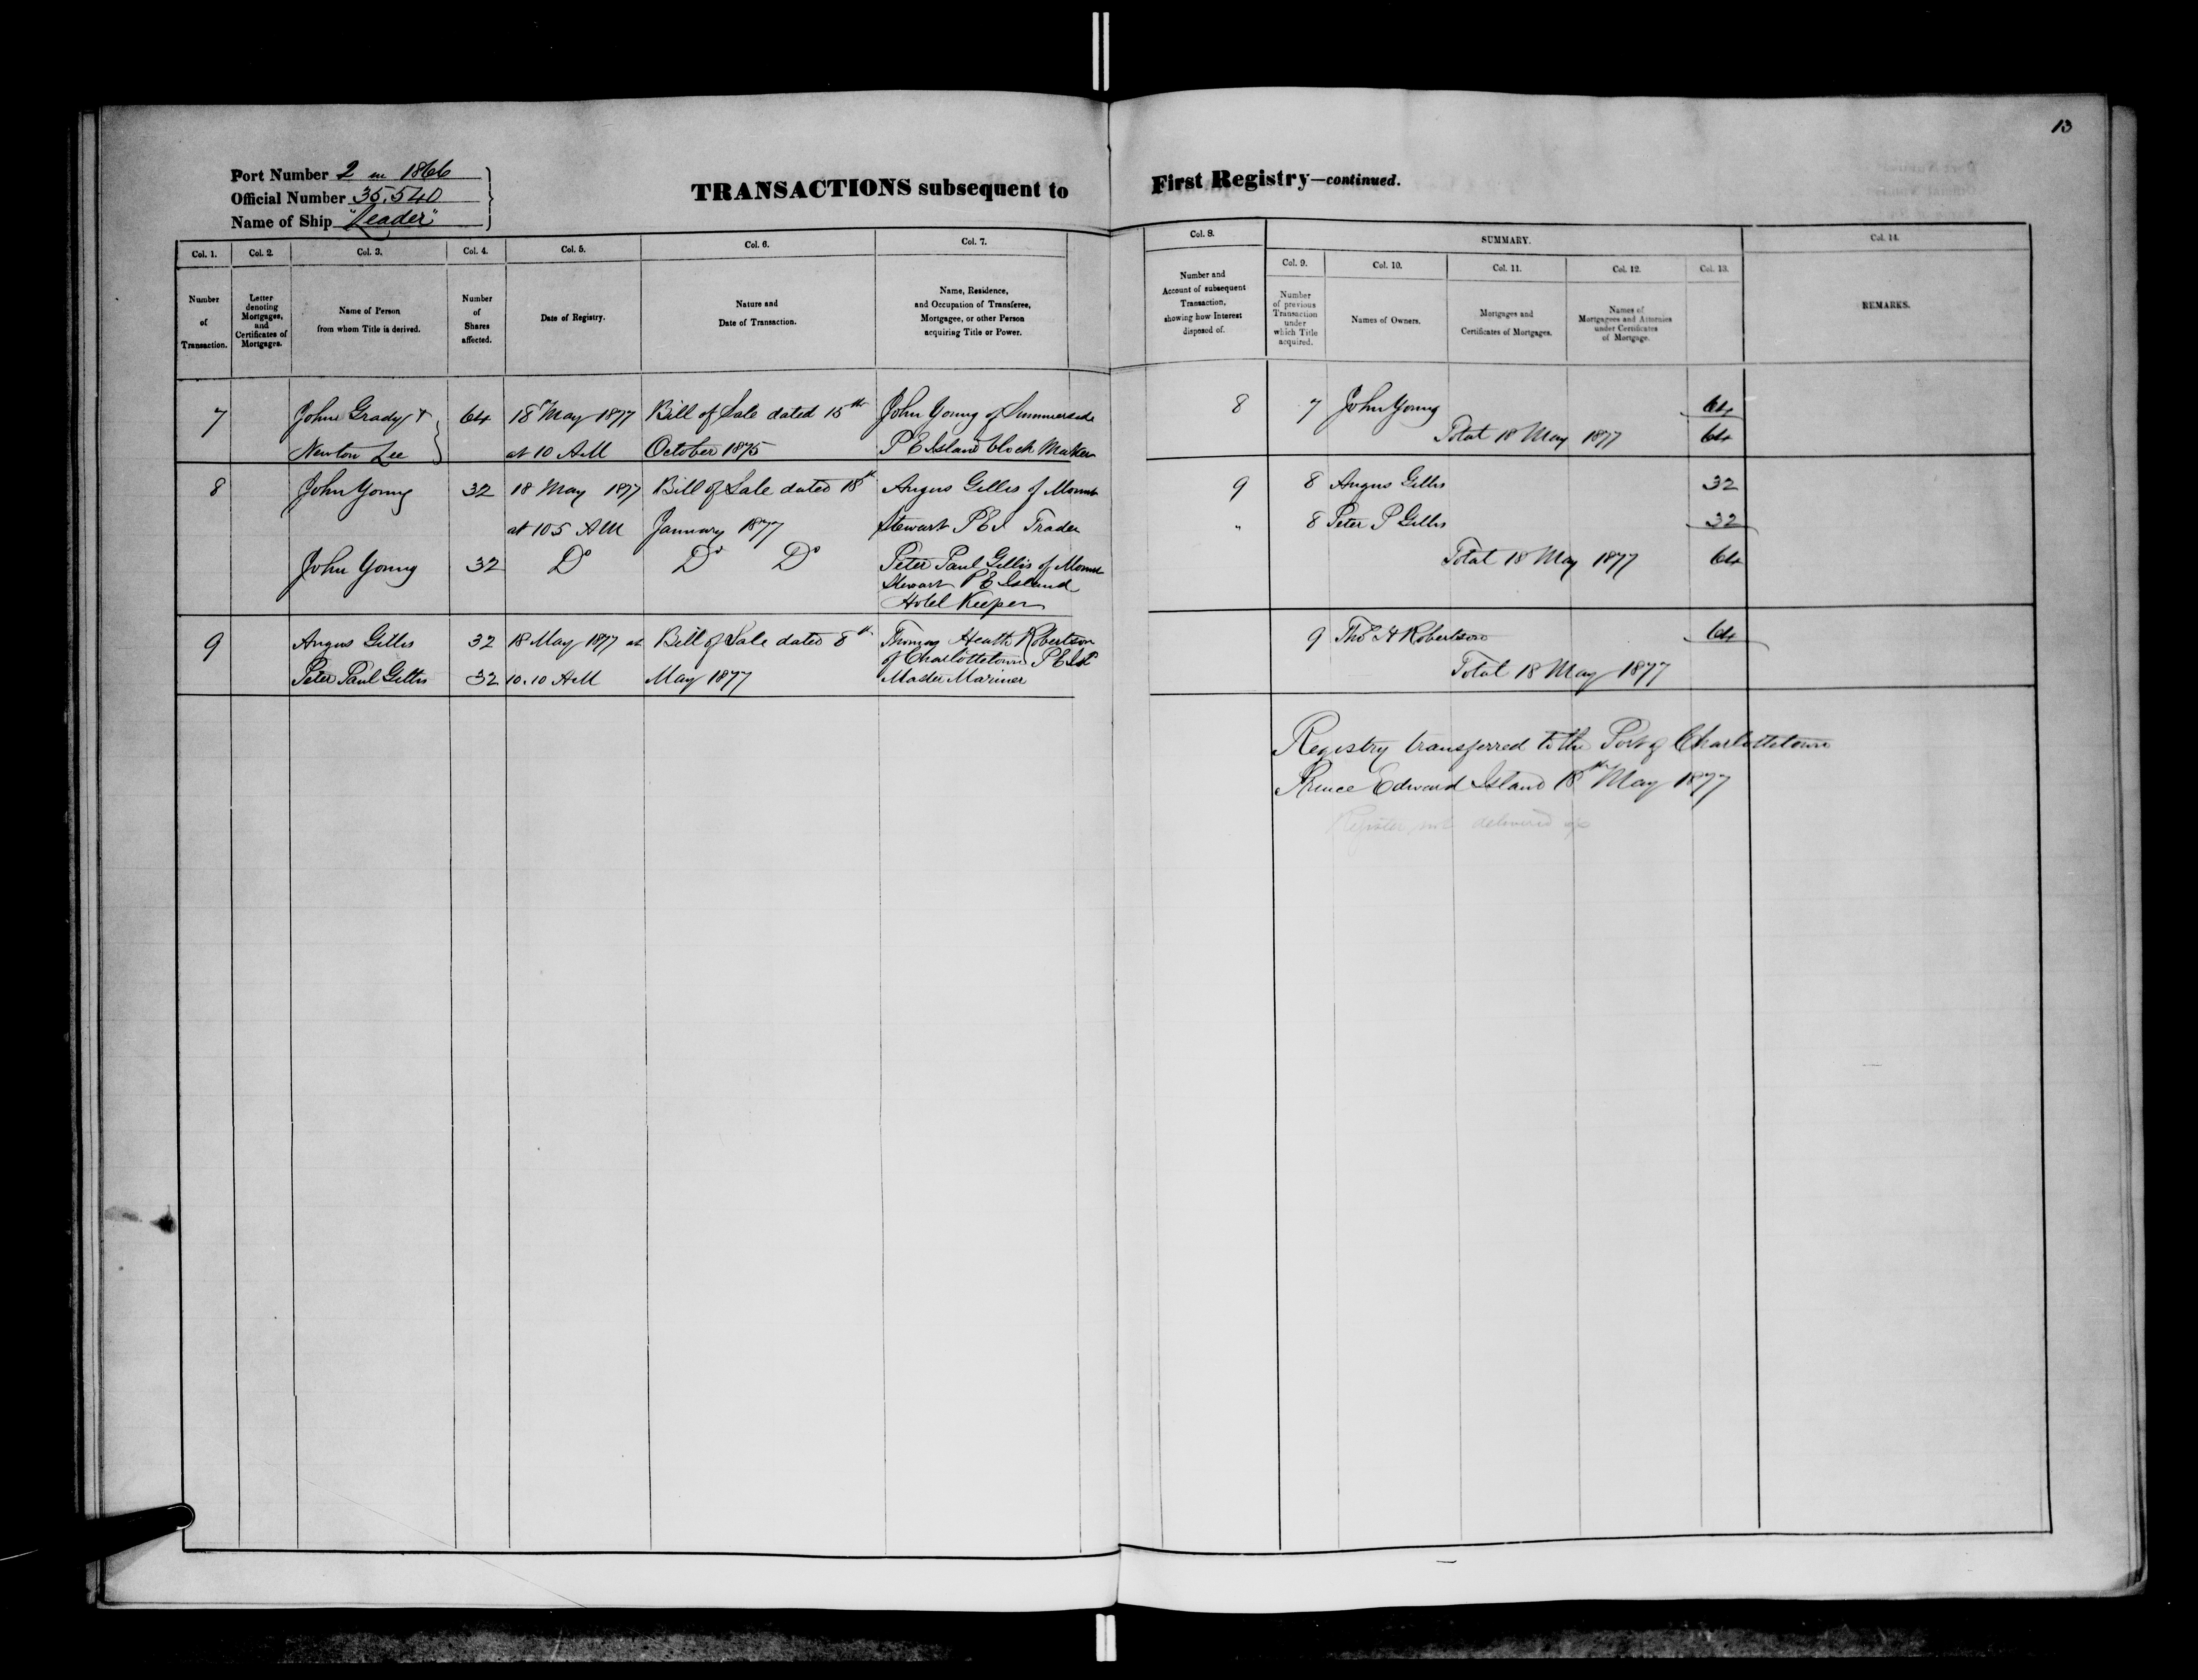 13
Port Number 2 in 1866
Official Number 35,540
Name of Ship "Leader"
TRANSACTIONS subsequent to First Registry—continued.
Col. 1. Col. 2. Col. 3. Col. 4. Col. 5. Col. 6. Col. 7. Col. 8. SUMMARY. Col. 14.
Col. 9. Col. 10. Col. 11. Col. 12. Col. 13.
Number of Transaction.
Letter denoting Mortgages, and Certificates of Mortgages.
Name of Person from whom Title is derived.
Number of Shares affected.
Date of Registry.
Nature and Date of Transaction.
Name, Residence, and Occupation of Transferee, Mortgagee, or other Person acquiring Title or Power.
Number and Account of subsequent Transaction, showing how Interest disposed of.
Number of previous Transaction under which Title acquired.
Names of Owners.
Mortgages and Certificates of Mortgages.
Names of Mortgagees and Attornies under Certificates of Mortgage.
REMARKS.
7 John Grady & 64 18th May 1877 Bill of Sale dated 15th John Young of Summerside 8 7 John Young 64
Newton Lee at 10 AM October 1875 P E Island block Maker Total 18 May 1877 64
8 John Young 32 18 May 1877 Bill of Sale dated 18th Angus Gillis of Mount 9 8 Angus Gillis 32
at 10 5 AM January 1877 Stewart P E I Trader " 8 Peter P Gillis 32
John Young 32 Do Do Do Peter Paul Gillis of Mount Total 18 May 1877 64
Stewart P E Island
Hotel Keeper
9 Angus Gillis 32 18 May 1877 at Bill of Sale dated 8th Thomas Heath Robertson 9 Thos H Robertson 64
of Charlottetown P E Isd
Peter Paul Gillis 32 10.10 AM May 1877 Master Mariner Total 18 May 1877
Registry transferred to the Port of Charlottetown
Prince Edward Island 18th May 1877
Register not delivered up